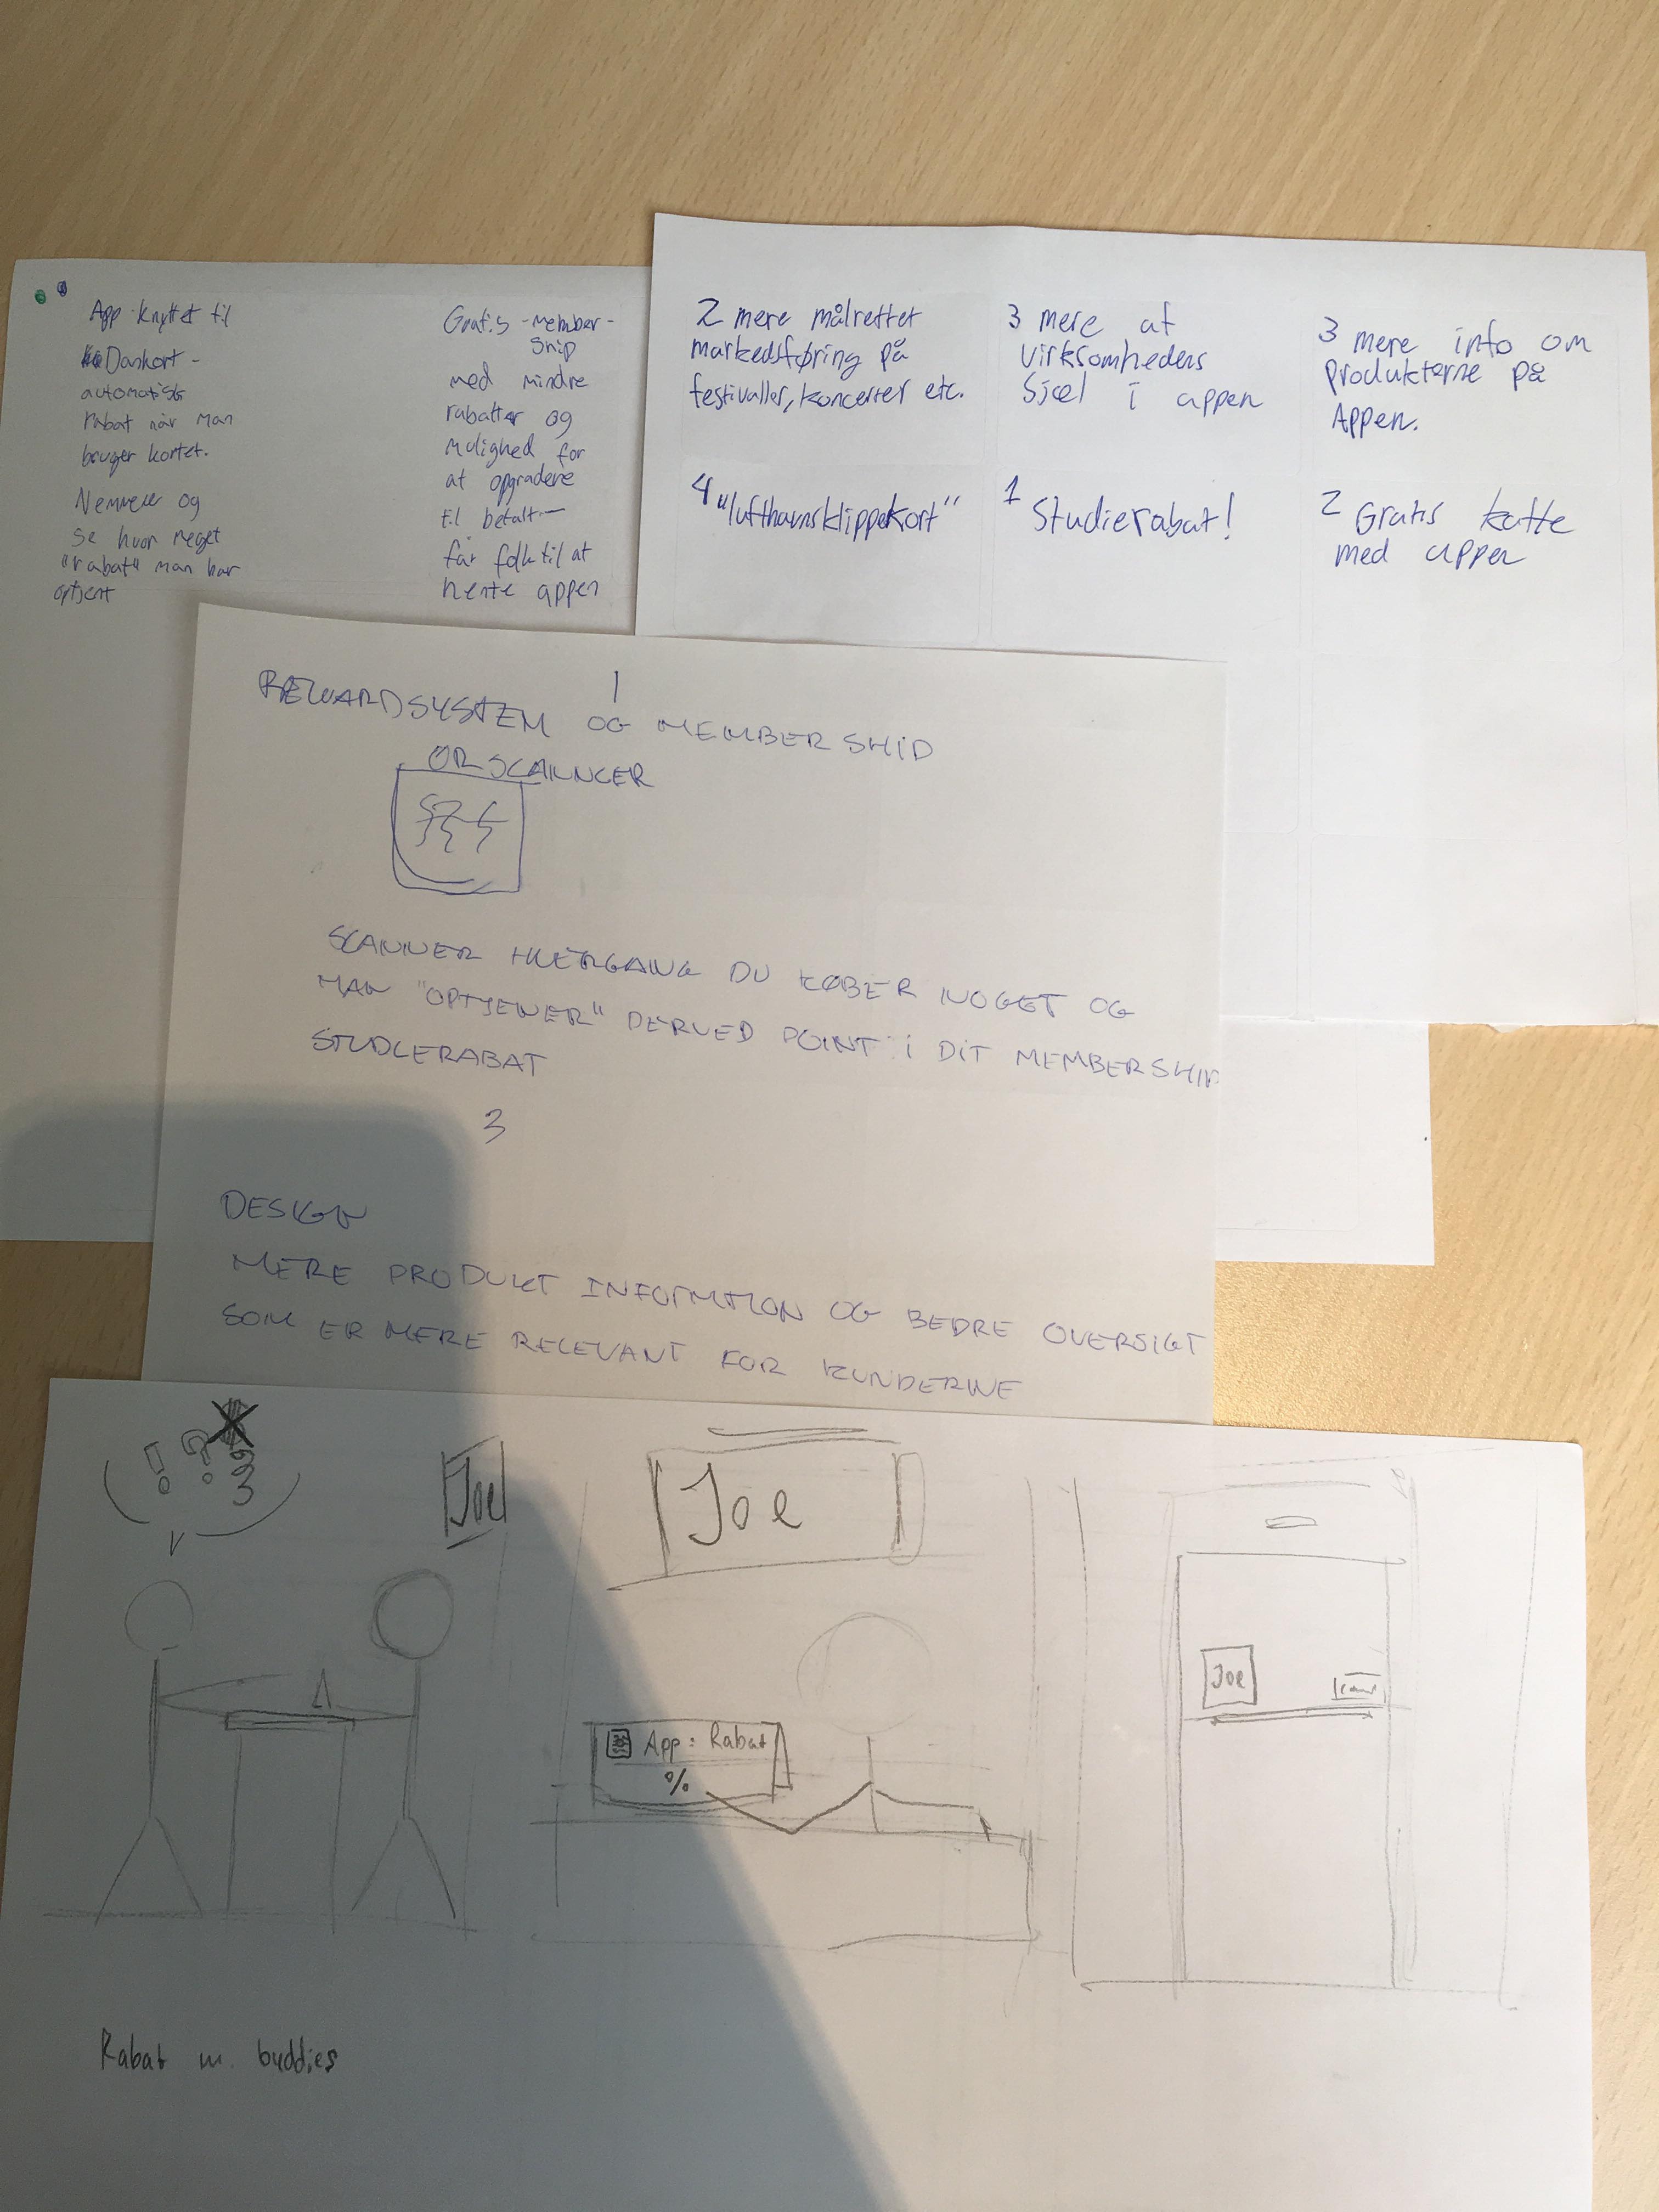 App knyttet til
Dankort -
automatisk
rabat når man
bruger kortet.
Nemmere og
se hvor meget
"rabat" man har
optjent
Gratis - member -
ship
med mindre
rabatter og
mulighed for
at opgradere
til betalt -
får folk til at
hente appen
2 mere målrettet
markedsføring på
festivaller, koncerter etc.
3 mere af
virksomhedens
Sjæl i appen
3 mere info om
produkterne på
Appen.
4 "lufthavnsklippekort"
1 Studierabat!
2 Gratis kaffe
med appen
1
REWARDSYSTEM OG MEMBERSHIP
QR SCANNCER
SCANNER HVERGANG DU KØBER NOGET OG
MAN "OPTJENER" DERVED POINT i DIT MEMBERSHIP
STUDIERABAT
3
DESIGN
MERE PRODUKT INFORMATION OG BEDRE OVERSIGT
SOM ER MERE RELEVANT FOR KUNDERNE
! ?
3
Joe
Joe
App: Rabat
%
Joe
Rabat m. buddies